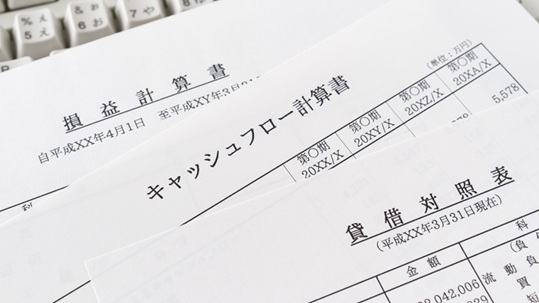 損益計算書
自平成XX年4月1日 至平成XY年3月31
キャッシュフロー計算書
(単位:万円)
第〇期 第〇期 第〇期 第〇期
20XX/X 20XY/X 20XZ/X 20XA/X
5,578
貸借対照表
(平成XX年3月31日現在)
金額 科
(負
流動負
買
短
042,006
%
5え
&
6お
7や